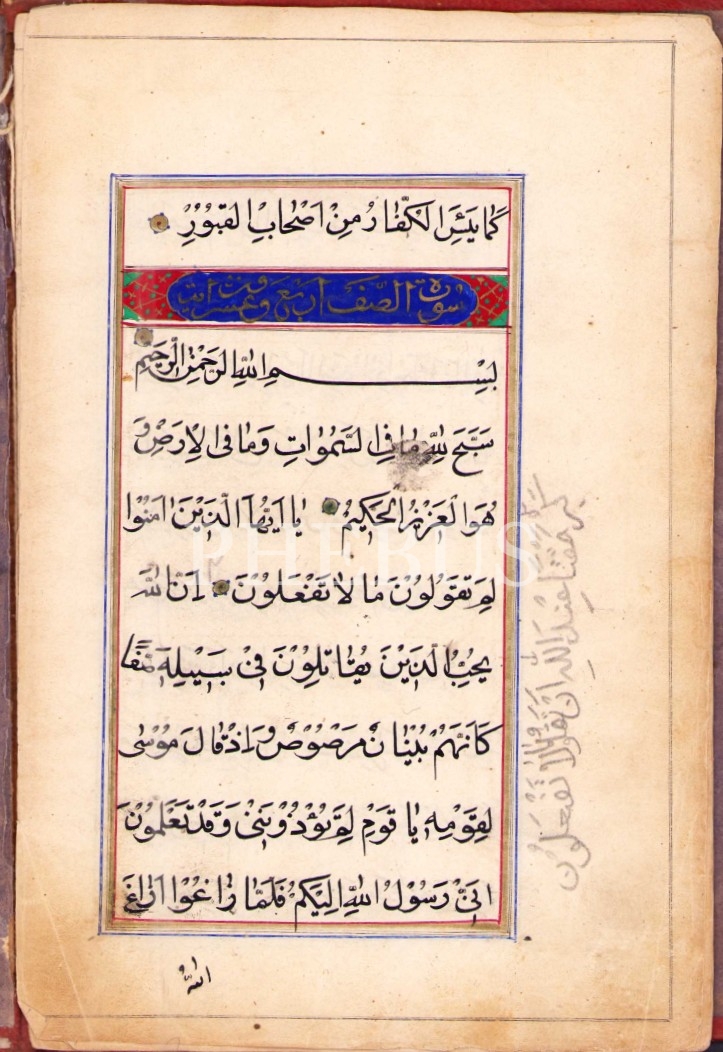 كَمَا يَئِسَ الْكُفَّارُ مِنْ اَصْحَابِ الْقُبُوْرِ
سورة الصف اربع وعشر ايت
بِسْمِ اللّٰهِ الرَّحْمٰنِ الرَّحِيْمِ
سَبَّحَ لِلّٰهِ مَا فِى السَّمٰوَاتِ وَمَا فِى الْاَرْضِ وَ
هُوَ الْعَزِيْزُ الْحَكِيْمُ يَا اَيُّهَا الَّذِيْنَ اٰمَنُوْا
لِمَ تَقُوْلُوْنَ مَا لَا تَفْعَلُوْنَ اِنَّ اللّٰهَ
يُحِبُّ الَّذِيْنَ يُقَاتِلُوْنَ فِىْ سَبِيْلِهٖ صَفًّا
كَاَنَّهُمْ بُنْيَانٌ مَرْصُوْصٌ وَاِذْ قَالَ مُوْسٰى
لِقَوْمِهٖ يَا قَوْمِ لِمَ تُؤْذُوْنَنِىْ وَقَدْ تَعْلَمُوْنَ
اَنِّىْ رَسُوْلُ اللّٰهِ اِلَيْكُمْ فَلَمَّا زَاغُوْا اَزَاغَ
اللّٰهُ
كَبُرَ مَقْتًا عِنْدَ اللّٰهِ اَنْ تَقُوْلُوْا مَا لَا تَفْعَلُوْنَ
PHEBUS